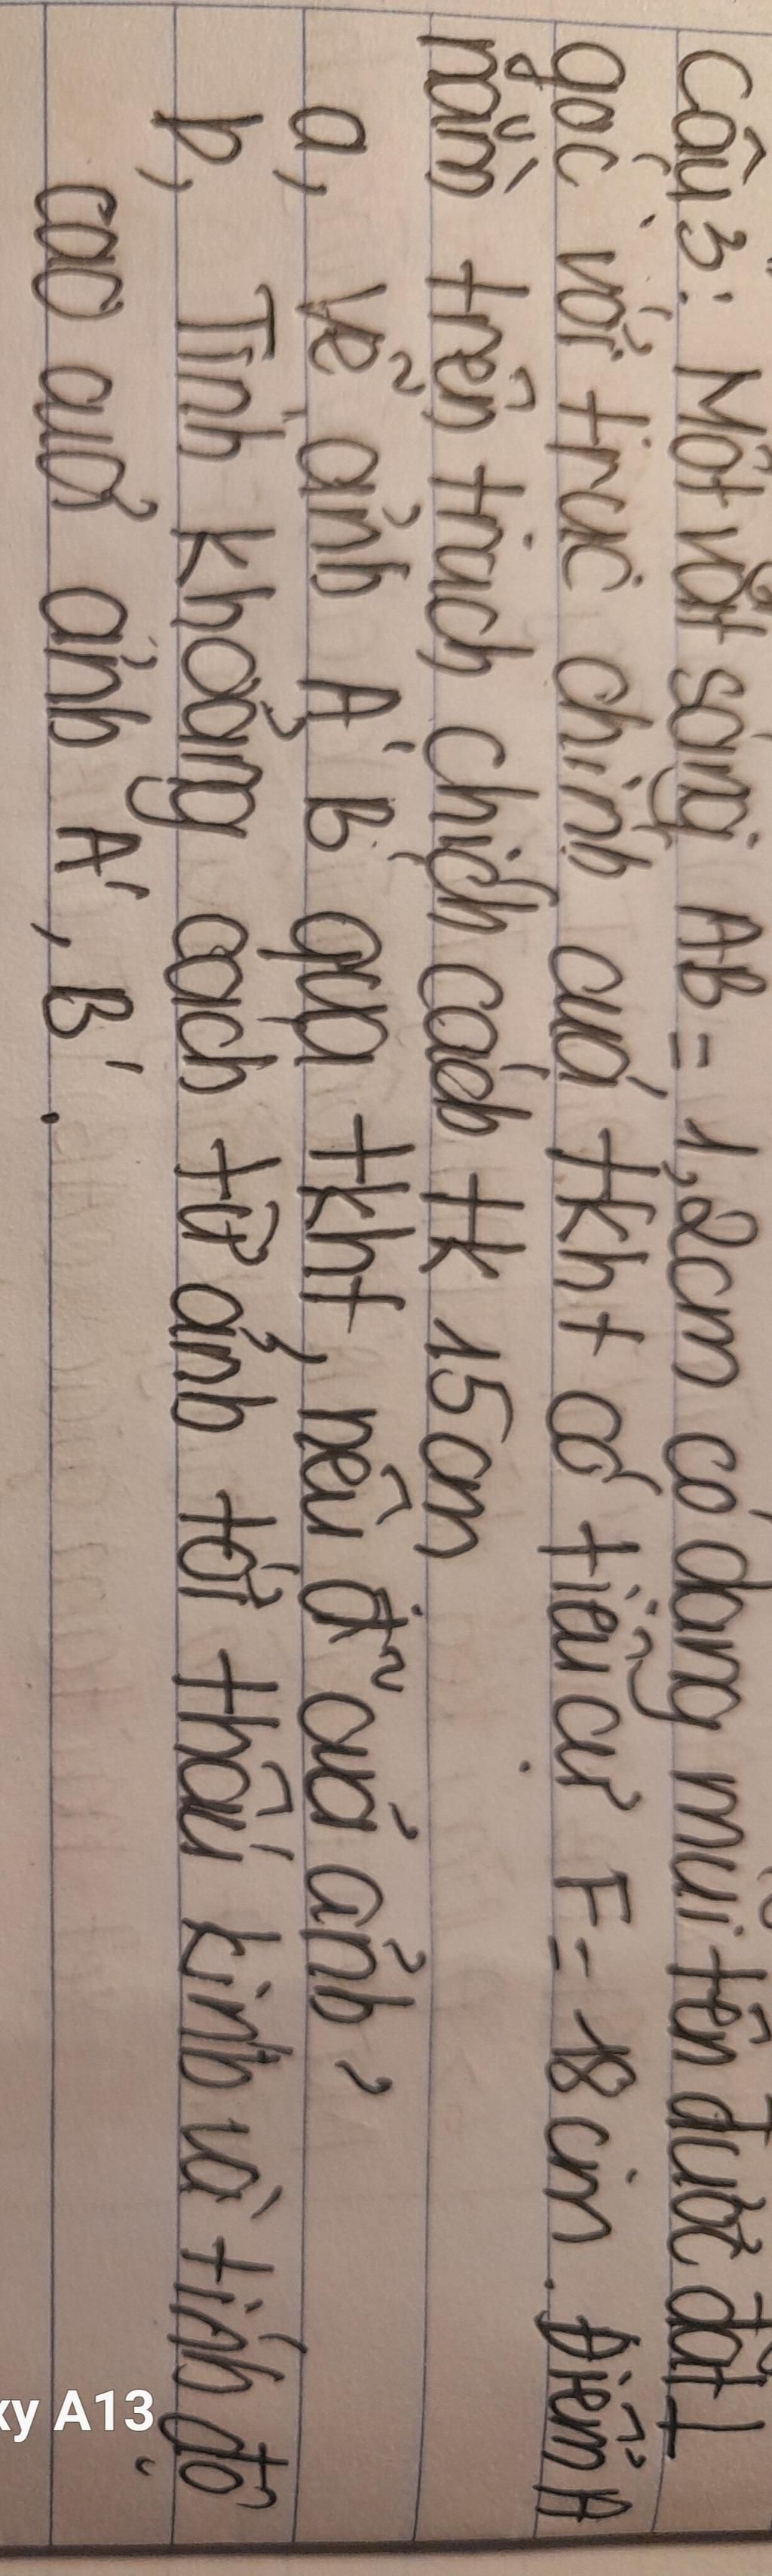 Câu 3: Một vật sáng AB = 1,2cm có dạng mũi tên được đặt ⊥
góc với trục chính của tkht có tiêu cự F = 18 cm. Điểm A
nằm trên trục chính cách tk 15 cm
a, Vẽ ảnh A'B' qua tkht, nêu đ² của ảnh ?
b, Tính khoảng cách từ ảnh tới thấu kính và tính độ
cao của ảnh A', B'.
xy A13